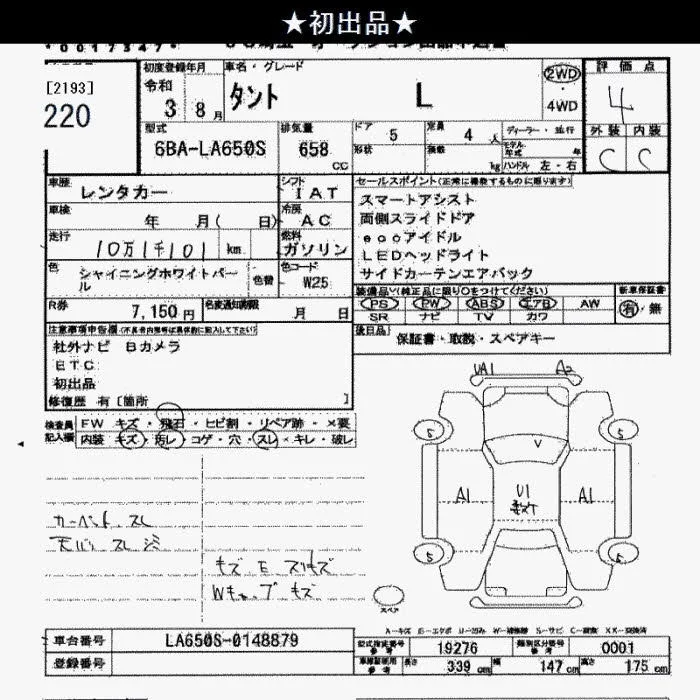 ★初出品★
*0017347*
[2193]
220
初度登録年月
令和
3 8 月
車名・グレード
タント L
2WD
・
4WD
評価点
4
外装 内装
C C
型式
6BA-LA650S
排気量
658
CC
ドア
5
定員
4 人
形状
積数
kg
ディーラー・並行
モデル
年式 年
ハンドル 左・右
車歴
レンタカー
シフト
IAT
車検
年 月( 日)
冷房
AC
走行
10万1千101 km
燃料
ガソリン
色
シャイニングホワイトパール
色替
色コード
W25
R券
7,150円
月 日
セールスポイント(正常に機能するものに限ります)
スマートアシスト
両側スライドドア
ecoアイドル
LEDヘッドライト
サイドカーテンエアバック
装備品(純正品に限り○をつけてください)
PS PW ABS エアB AW
SR ナビ TV カワ
新車保証書
有・無
後日品
保証書・取説・スペアキー
注意事項申告欄
社外ナビ Bカメラ
ETC
初出品
修復歴 有[箇所 ]
検査員
記入欄
FW キズ・飛石・ヒビ割・リペア跡・×要
内装 キズ・汚レ・コゲ・穴・スレ・キレ・破レ
UA1 A2
5 5
V
A1 U1 A1
5 5
カーペット スレ
天バリ スレ
キズ E スリキズ
Wキャップ キズ
スペア
車台番号
LA650S-0148879
登録番号
型式指定番号
参考
19276
類別区分番号
参考
0001
長さ 339 cm 幅 147 cm 高さ 175 cm